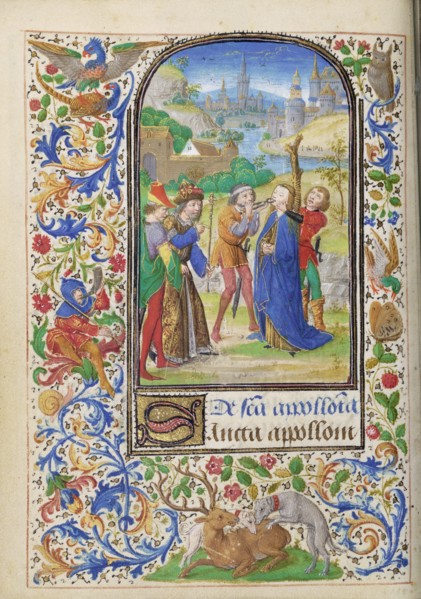 De scā appollonia
Sancta appolloni